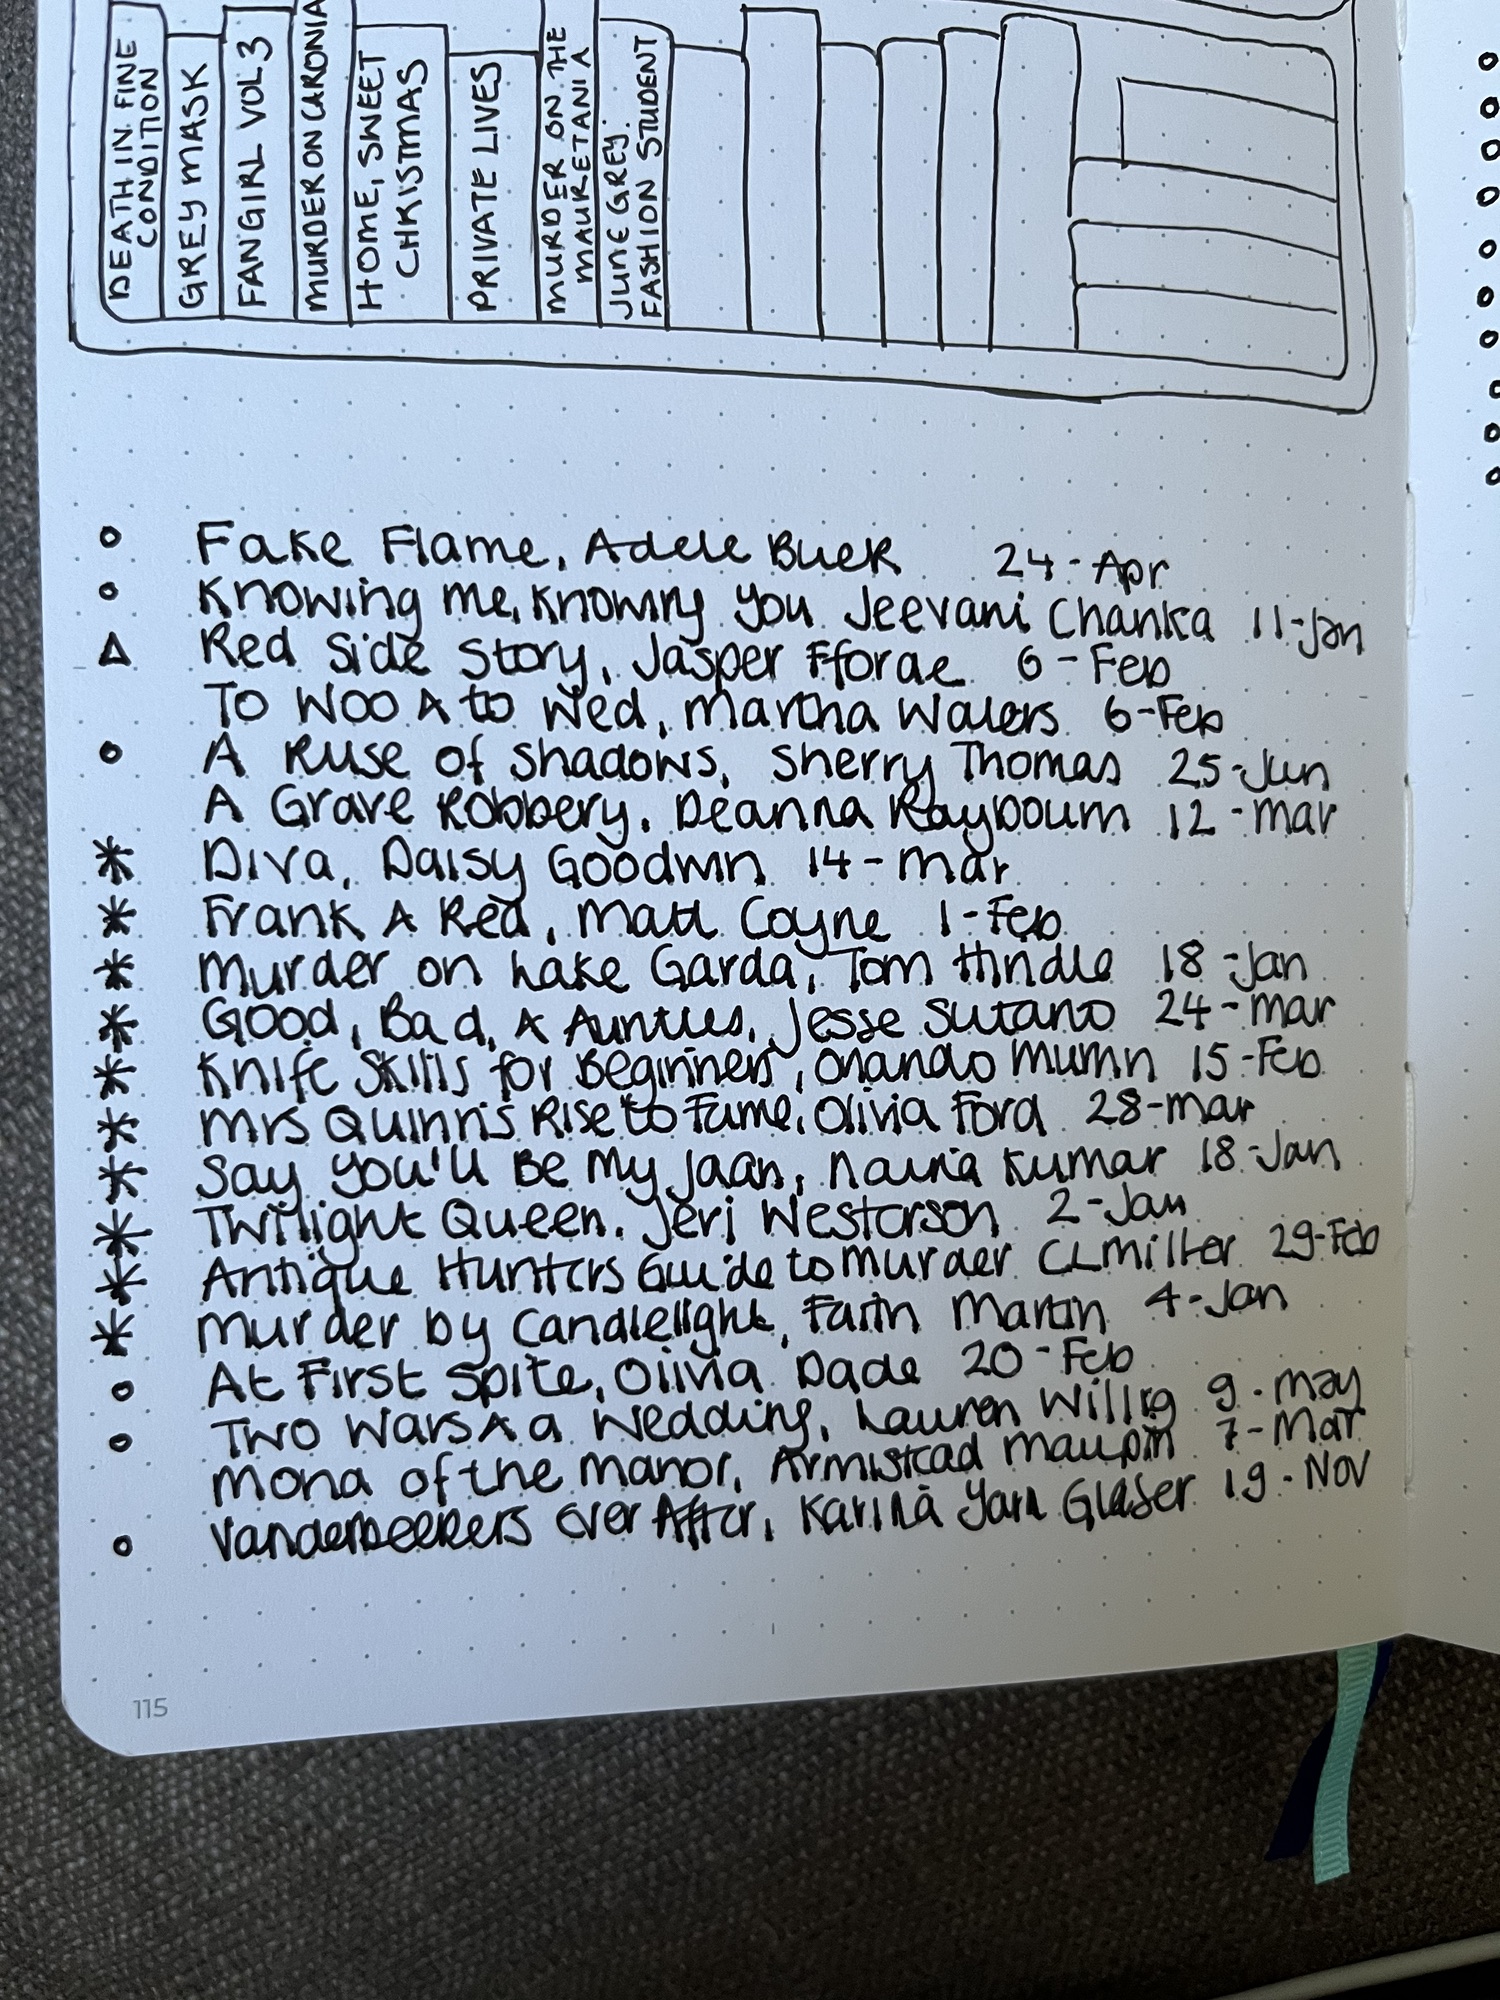 DEATH IN FINE
CONDITION
GREY MASK
FANGIRL VOL 3
MURDER ON CARONIA
HOME, SWEET
CHRISTMAS
PRIVATE LIVES
MURDER ON THE
MAURETANIA
JUNE GREY.
FASHION STUDENT
Fake Flame, Adele Buck 24-Apr
Knowing me, knowing you Jeevani Charika 11-Jan
Red Side Story, Jasper Fforde 6-Feb
To Woo & to Wed, Martha Waters 6-Feb
A Ruse of Shadows, Sherry Thomas 25-Jun
A Grave Robbery, Deanna Raybourn 12-Mar
Diva, Daisy Goodwin 14-Mar
Frank & Red, Matt Coyne 1-Feb
Murder on Lake Garda, Tom Hindle 18-Jan
Good, Bad, & Aunties, Jesse Sutano 24-Mar
Knife Skills for Beginners, Orlando Murrin 15-Feb
Mrs Quinn's Rise to Fame, Olivia Ford 28-Mar
Say You'll Be My Jaan, Naina Kumar 18-Jan
Twilight Queen, Jeri Westerson 2-Jan
Antique Hunters Guide to Murder CL Miller 29-Feb
Murder by Candlelight, Faith Martin 4-Jan
At First Spite, Olivia Dade 20-Feb
Two Wars & a Wedding, Lauren Willig 9-May
Mona of the Manor, Armistead Maupin 7-Mar
Vanderbeekers Ever After, Karina Yan Glaser 19-Nov
115